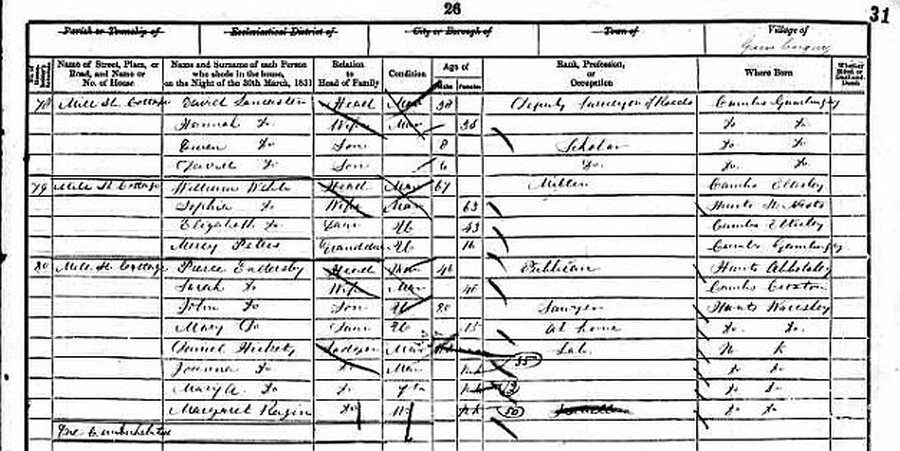 26
31
Parish or Township of Ecclesiastical District of City or Borough of Town of Village of
Name of Street, Place, or Road, and Name or No. of House Name and Surname of each Person who abode in the house, on the Night of the 30th March, 1851 Relation to Head of Family Condition Age of Males Females Rank, Profession, or Occupation Where Born Whether Blind, or Deaf-and-Dumb
78 Mill St. Cottage David Lancaster Head Mar 38 Deputy Surveyor of Roads Cambs Gamlingay
Hannah Do Wife Mar 36 Do Do
Owen Do Son 8 Scholar Do Do
Do Son 6 Do Do Do
79 Mill St. Cottage William Head Mar 67 Miller Cambs Eltisley
Sophia Do Wife Mar 63 Hunts St. Neots
Elizabeth Do Daur U 43 Cambs Eltisley
Mercy Peters Granddaur U 16 Cambs Gamlingay
80 Mill St. Cottage Pierce Endersby Head Mar 46 Hunts Abbotsley
Sarah Do Wife Mar 45 Cambs Croxton
John Do Son U 20 Sawyer Hunts Waresley
Mary Do Daur U 15 At home Do Do
Daniel Lodger Mar Lab. N K
Joanna Do Do Mar N.K 35 Do Do
Mary A. Do Do N.K Do Do
Margaret Do N.K 50 Do Do